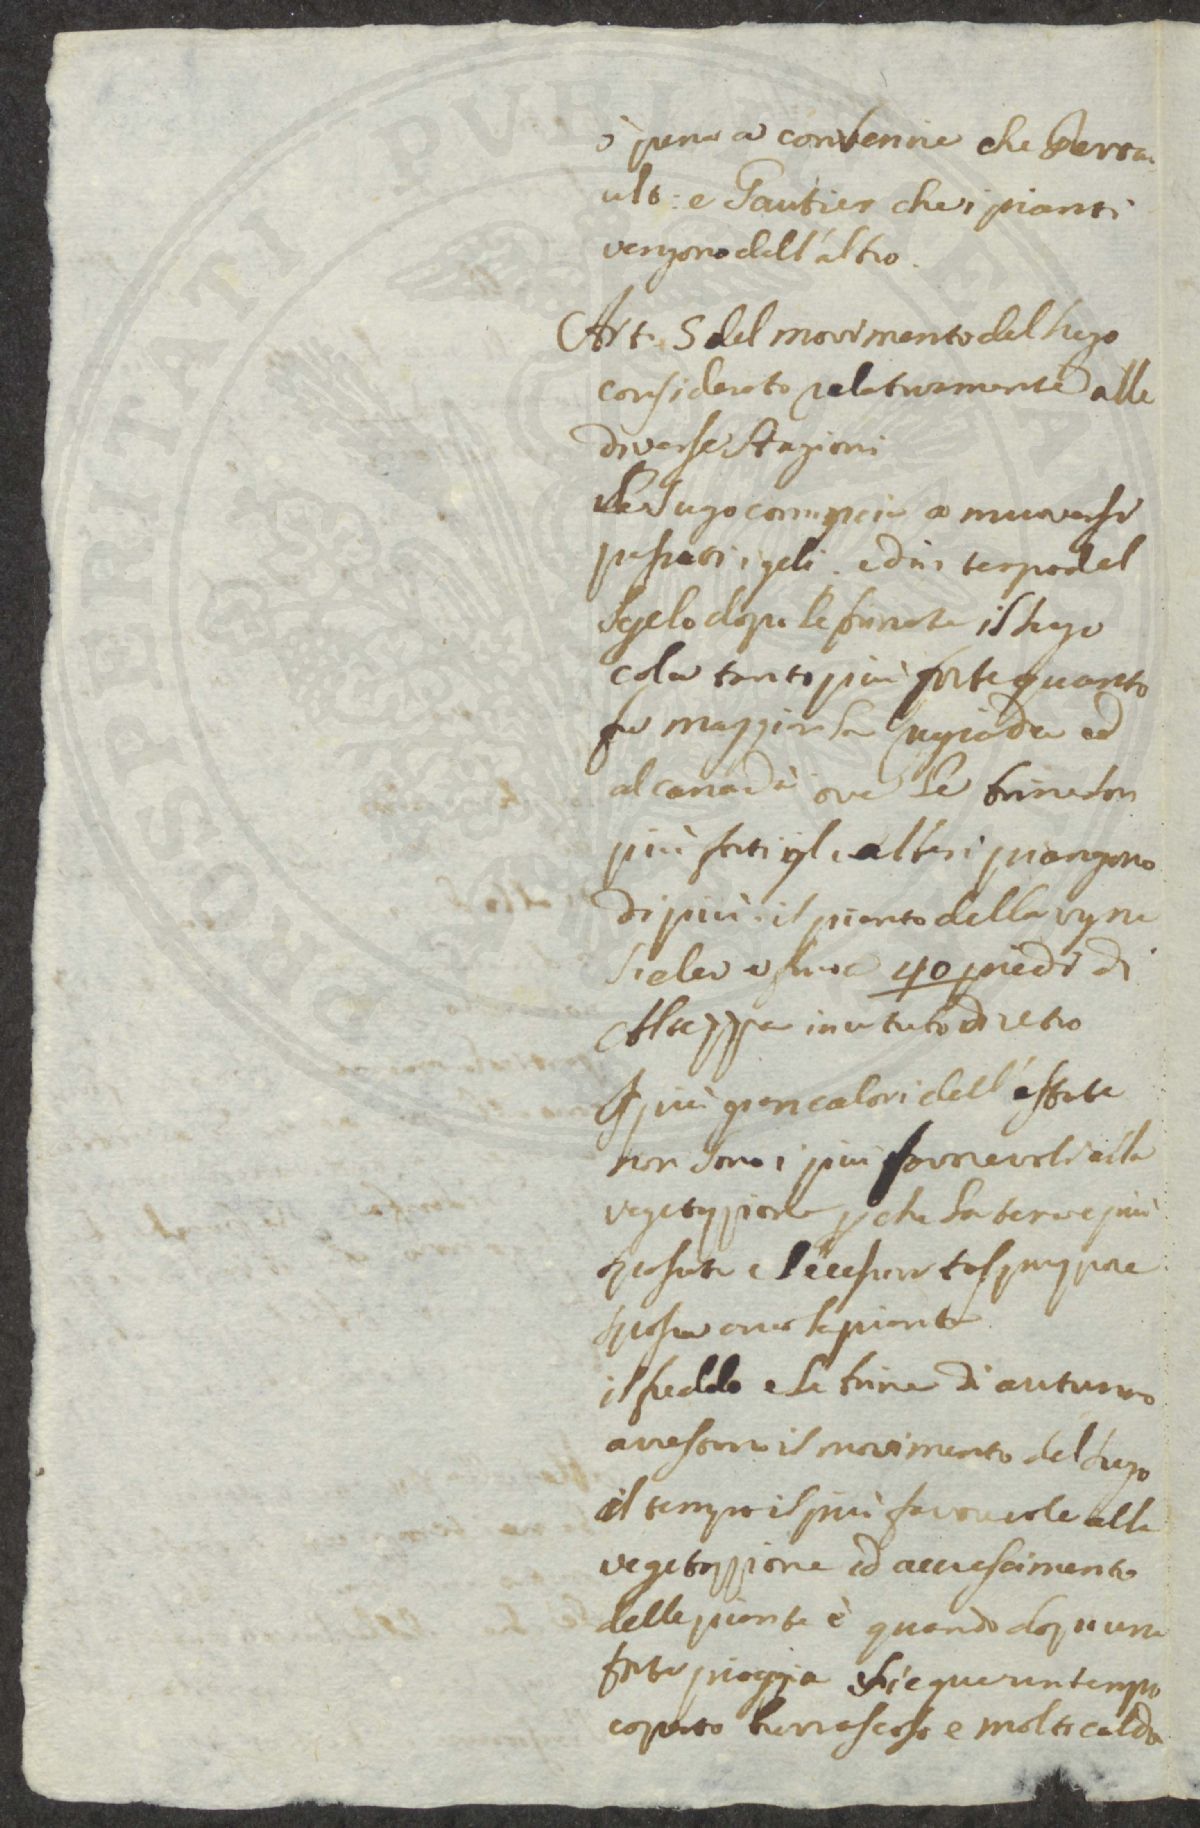 è pena a convenire che Perra-
ult: e Gautier che i pianti
vengono dall'alto.
Art. 5 del movimento del sugo
considerato relativamente alle
diverse stagioni
Il sugo comincia a muoversi
passati i geli. ed in tempo del
sgelo dopo le brinate il sugo
cola tanto più forte quanto
fu maggior la rugiada ed
al canadà ove le brine son
più forti gli alberi piangono
di più. il pianto della vigna
si eleva sino a 40 piedi di
altezza in un tubo di vetro
I più gran calori dell'estate
non sono i più favorevoli alla
vegetazzione pche la terra è più
e
la pianta
il freddo e le brine di autunno
arrestano il movimento del sugo
il tempo il più favorevole alla
vegetazzione ed accrescimento
delle piante è quando dopo una
forte pioggia siegue un tempo
coperto burrascoso e molto caldo
PROSPERITATI PUBLICAE